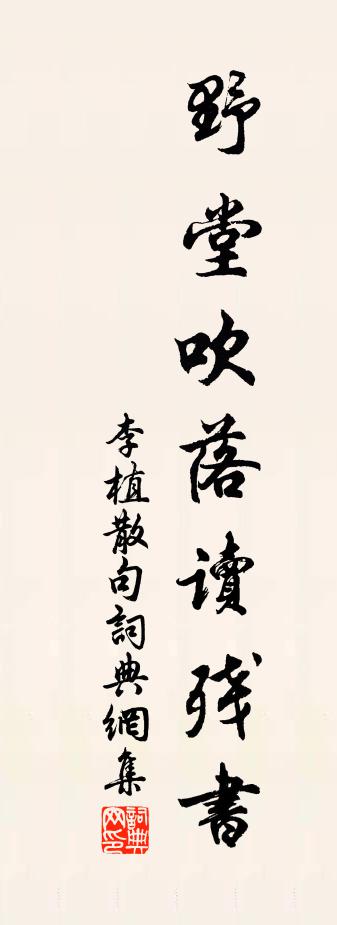 野堂吹落讀残書
李植散句詞典網集
詞典网印